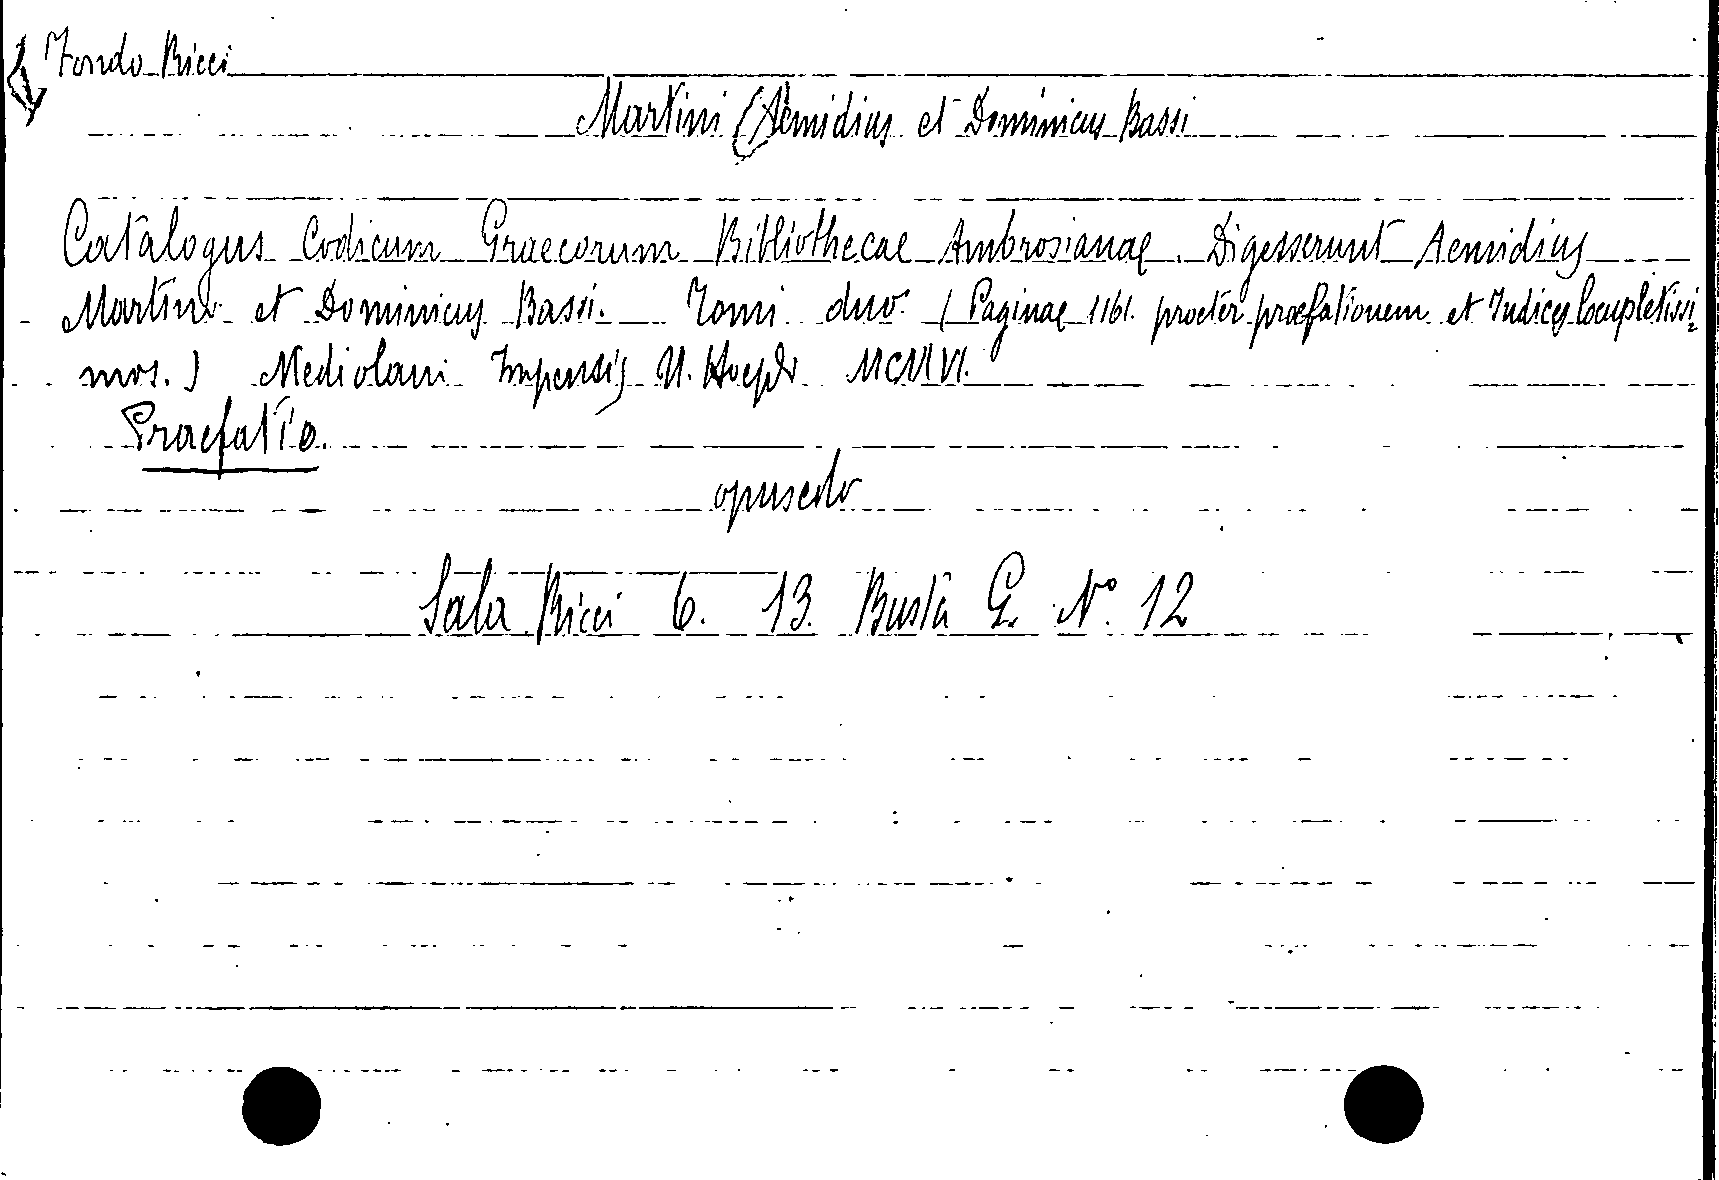 Fondo Ricci
Martini (Aemidius et Dominicus Bassi
Catalogus Codicum Graecorum Bibliothecae Ambrosianae. Digesserunt Aemidius
Martini et Dominicus Bassi. Tomi duo. (Paginae 1161. praeter praefationem et Indices locupletissi=
mos.) Mediolani Impensis U. Hoepli MCMVI.
Praefatio.
opuscolo
Sala Ricci 6. 13. Busta G. N° 12